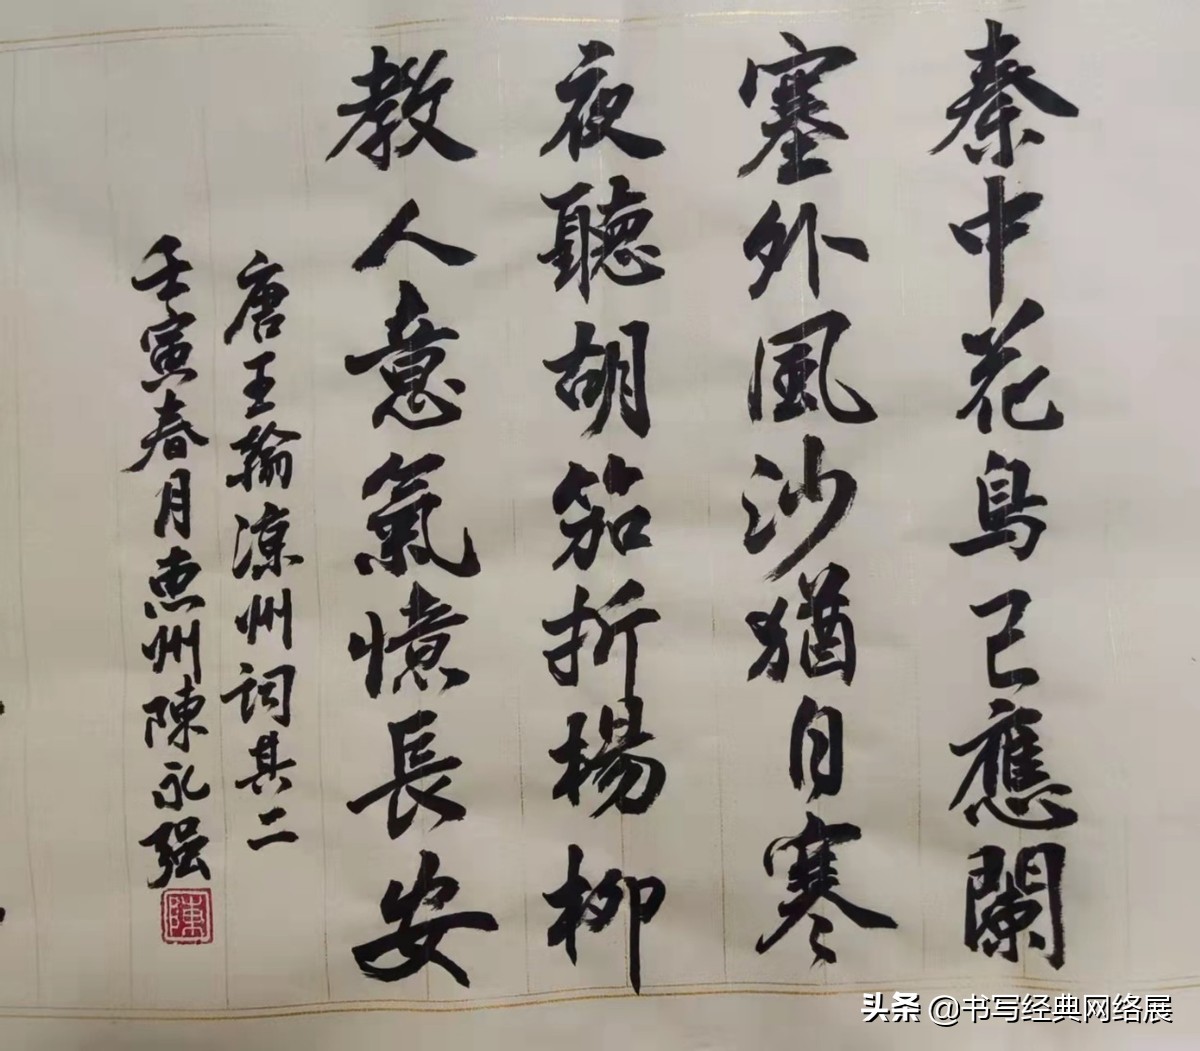 秦中花鳥已應闌
塞外風沙猶自寒
夜聽胡笳折楊柳
教人意氣憶長安
唐王翰涼州詞其二
壬寅春月惠州陳永强
陳
头条 @书写经典网络展